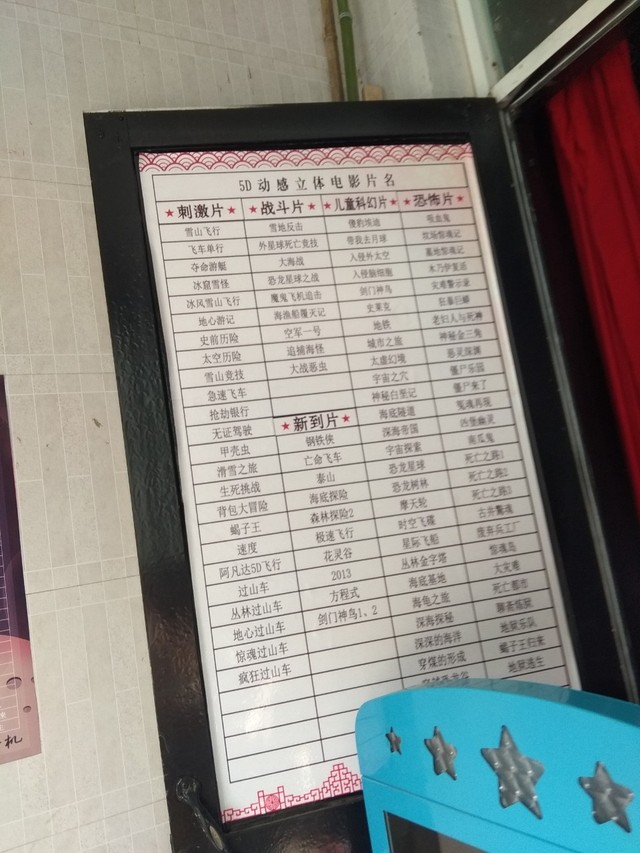 5D动感立体电影片名
★刺激片★ ★战斗片★ ★儿童科幻片★ ★恐怖片★
雪山飞行 雪地反击 傻豹埃迪 吸血鬼
飞车单行 外星球死亡竞技 带我去月球 坟场惊魂记
夺命游艇 大海战 入侵外太空 墓地惊魂记
冰窟雪怪 恐龙星球之战 入侵脑细胞 木乃伊复活
冰风雪山飞行 魔鬼飞机追击 剑门神鸟 灾难警示录
地心游记 海渔船覆灭记 史莱克 狂暴巨蟒
史前历险 空军一号 地铁 老妇人与死神
太空历险 追捕海怪 城市之旅 神秘金三角
雪山竞技 大战恶虫 太虚幻境 恶灵深渊
急速飞车 宇宙之穴 僵尸乐园
抢劫银行 神秘白垩记 僵尸来了
无证驾驶 ★新到片★ 海底隧道 冤魂再现
甲壳虫 钢铁侠 深海帝国 古堡幽灵
滑雪之旅 亡命飞车 宇宙探索 南瓜鬼
生死挑战 泰山 恐龙星球 死亡之路1
背包大冒险 海底探险 恐龙树林 死亡之路2
蝎子王 森林探险2 摩天轮 死亡之路3
速度 极速飞行 时空飞碟 古井惊魂
阿凡达5D飞行 花灵谷 星际飞船 废弃兵工厂
过山车 2013 丛林金字塔 惊魂岛
丛林过山车 方程式 海底基地 大灾难
地心过山车 剑门神鸟1、2 海龟之旅 死亡都市
惊魂过山车 深海探秘 聊斋炼狱
疯狂过山车 深深的海洋 地狱乐队
穿煤的形成 蝎子王归来
地狱逃生
机